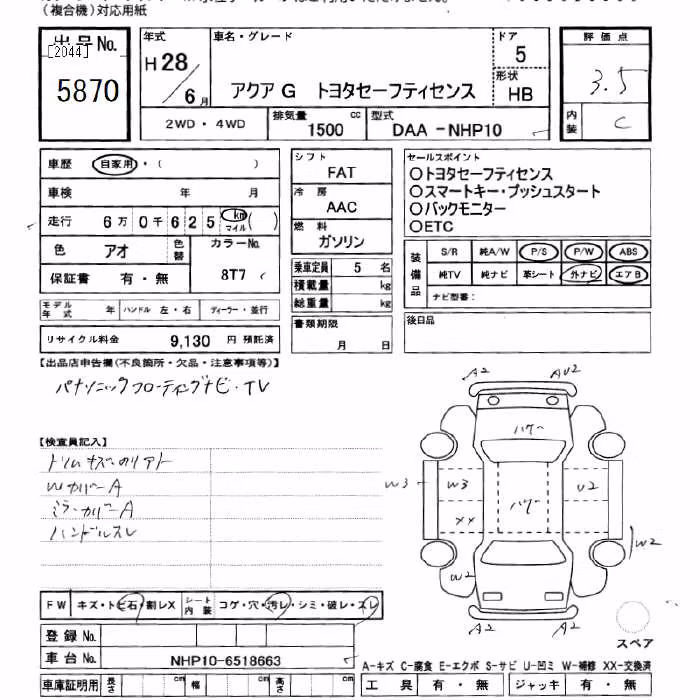 （複合機）対応用紙
出品No.
[2044]
5870
年式
H28/6月
車名・グレード
アクア G トヨタセーフティセンス
ドア
5
形状
HB
2WD・4WD
排気量 1500 cc
型式 DAA -NHP10
評価点
3.5
内装
C
車歴 自家用・( )
車検 年 月
走行 6万0千625 km マイル ( )
色 アオ 色替 カラーNo. 8T7
保証書 有・無
モデル年式 年 ハンドル 左・右 ディーラー・並行
リサイクル料金 9,130 円 預託済
シフト
FAT
冷房
AAC
燃料
ガソリン
乗車定員 5 名
積載量 kg
総重量 kg
書類期限
月 日
セールスポイント
○トヨタセーフティセンス
○スマートキー・プッシュスタート
○バックモニター
○ETC
装備品
S/R 純A/W P/S P/W ABS
純TV 純ナビ 革シート 外ナビ エアB
ナビ型番:
後日品
【出品店申告欄(不良箇所・欠品・注意事項等)】
パナソニックフローティングナビ・TV
【検査員記入】
トリムキズ
Wカバー A
ミラーカバー A
ハンドルスレ
FW キズ・トビ石・割レX シート内装 コゲ・穴・汚レ・シミ・破レ・スレ
登録No.
車台No. NHP10-6518663
車庫証明用 長さ cm 幅 cm 高さ cm
A2 AU2
ハゲ
W3 W3 ハゲ U2
XX
W2 W2
A2 A2
スペア
A-キズ C-腐食 E-エクボ S-サビ U-凹ミ W-補修 XX-交換済
工具 有・無 ジャッキ 有・無